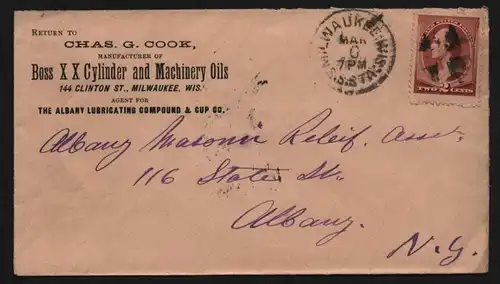 RETURN TO
CHAS. G. COOK,
MANUFACTURER OF
Boss X X Cylinder and Machinery Oils
144 CLINTON ST., MILWAUKEE, WIS.
AGENT FOR
THE ALBANY LUBRICATING COMPOUND & CUP CO.
MILWAUKEE WIS.
MAR
7PM
S.STA.
TWO 2 CENTS
Albany Masonic Releif. Asso.
116 State St.
Albany.
N.Y.